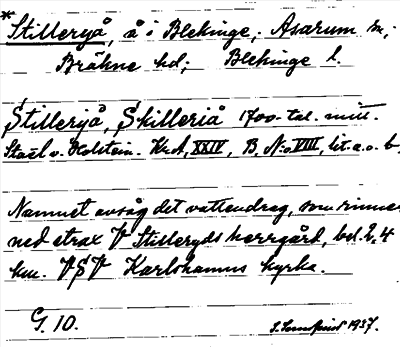 *Stilleryå, å i Blekinge; Asarum sn;
Bräkne hd; Blekinge l.
Stilleriå, Skilleriå 1700-tal. mitt.
Staël v. Holstein. KrA, XXIV, B, N:o VIII, lit. a. o. b.
Namnet avsåg det vattendrag, som rinner
ned strax V Stilleryds herrgård, bel. 2,4
km. VSV Karlshamns kyrka.
G. 10. 1937.